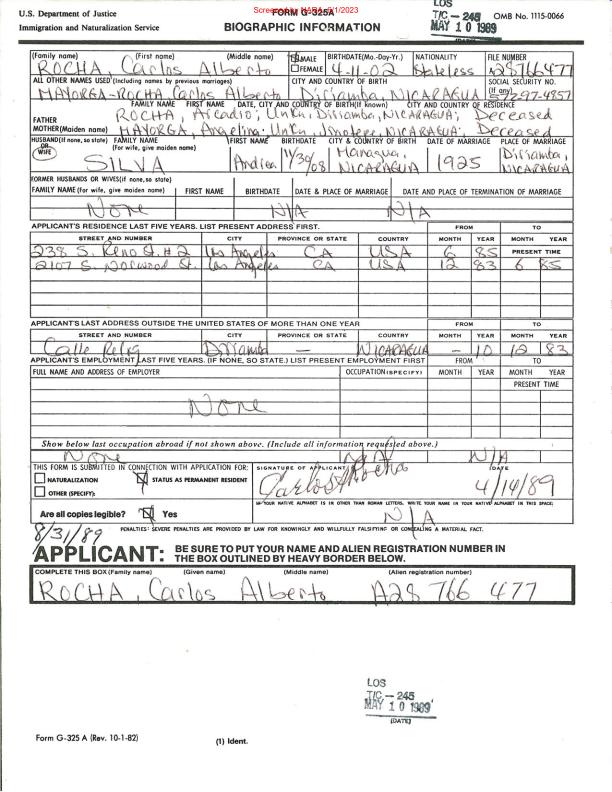 U.S. Department of Justice
Immigration and Naturalization Service
FORM G-325A
Screened by NARA, 6/1/2023
BIOGRAPHIC INFORMATION
LOS
T/C — 245
MAY 10 1989
OMB No. 1115-0066
(Family name) (First name) (Middle name) MALE FEMALE BIRTHDATE(Mo.-Day-Yr.) NATIONALITY FILE NUMBER
ROCHA Carlos Alberto 4-11-02 Stateless A28766477
ALL OTHER NAMES USED (Including names by previous marriages) CITY AND COUNTRY OF BIRTH SOCIAL SECURITY NO. (If any)
MAYORGA-ROCHA, Carlos Alberto Diriamba, NICARAGUA 577-97-4857
FAMILY NAME FIRST NAME DATE, CITY AND COUNTRY OF BIRTH(If known) CITY AND COUNTRY OF RESIDENCE
FATHER ROCHA, Arcadio; Unkn, Diriamba, NICARAGUA; Deceased
MOTHER(Maiden name) MAYORGA, Angelina; Unkn, Jinotepe, NICARAGUA; Deceased
HUSBAND(If none, so state) OR WIFE FAMILY NAME (For wife, give maiden name) FIRST NAME BIRTHDATE CITY & COUNTRY OF BIRTH DATE OF MARRIAGE PLACE OF MARRIAGE
SILVA Andrea 11/30/08 Managua, NICARAGUA 1925 Diriamba, NICARAGUA
FORMER HUSBANDS OR WIVES(If none, so state)
FAMILY NAME (For wife, give maiden name) FIRST NAME BIRTHDATE DATE & PLACE OF MARRIAGE DATE AND PLACE OF TERMINATION OF MARRIAGE
None N/A N/A
APPLICANT'S RESIDENCE LAST FIVE YEARS. LIST PRESENT ADDRESS FIRST. FROM TO
STREET AND NUMBER CITY PROVINCE OR STATE COUNTRY MONTH YEAR MONTH YEAR
238 S. Reno St. #2 Los Angeles CA USA 6 85 PRESENT TIME
2107 S. Norwood St. Los Angeles CA USA 12 83 6 85
APPLICANT'S LAST ADDRESS OUTSIDE THE UNITED STATES OF MORE THAN ONE YEAR FROM TO
STREET AND NUMBER CITY PROVINCE OR STATE COUNTRY MONTH YEAR MONTH YEAR
Calle Diriamba — NICARAGUA — 10 12 83
APPLICANT'S EMPLOYMENT LAST FIVE YEARS. (IF NONE, SO STATE.) LIST PRESENT EMPLOYMENT FIRST FROM TO
FULL NAME AND ADDRESS OF EMPLOYER OCCUPATION(SPECIFY) MONTH YEAR MONTH YEAR
PRESENT TIME
None
Show below last occupation abroad if not shown above. (Include all information requested above.)
None N/A N/A
THIS FORM IS SUBMITTED IN CONNECTION WITH APPLICATION FOR: SIGNATURE OF APPLICANT DATE
NATURALIZATION STATUS AS PERMANENT RESIDENT
OTHER (SPECIFY):
Carlos A Rocha 4/14/89
Are all copies legible? Yes
IF YOUR NATIVE ALPHABET IS IN OTHER THAN ROMAN LETTERS, WRITE YOUR NAME IN YOUR NATIVE ALPHABET IN THIS SPACE:
N/A
8/31/89
PENALTIES: SEVERE PENALTIES ARE PROVIDED BY LAW FOR KNOWINGLY AND WILLFULLY FALSIFYING OR CONCEALING A MATERIAL FACT.
APPLICANT: BE SURE TO PUT YOUR NAME AND ALIEN REGISTRATION NUMBER IN
THE BOX OUTLINED BY HEAVY BORDER BELOW.
COMPLETE THIS BOX (Family name) (Given name) (Middle name) (Alien registration number)
ROCHA, Carlos Alberto A28 766 477
LOS
T/C — 245
MAY 10 1989
(DATE)
Form G-325 A (Rev. 10-1-82)
(1) Ident.